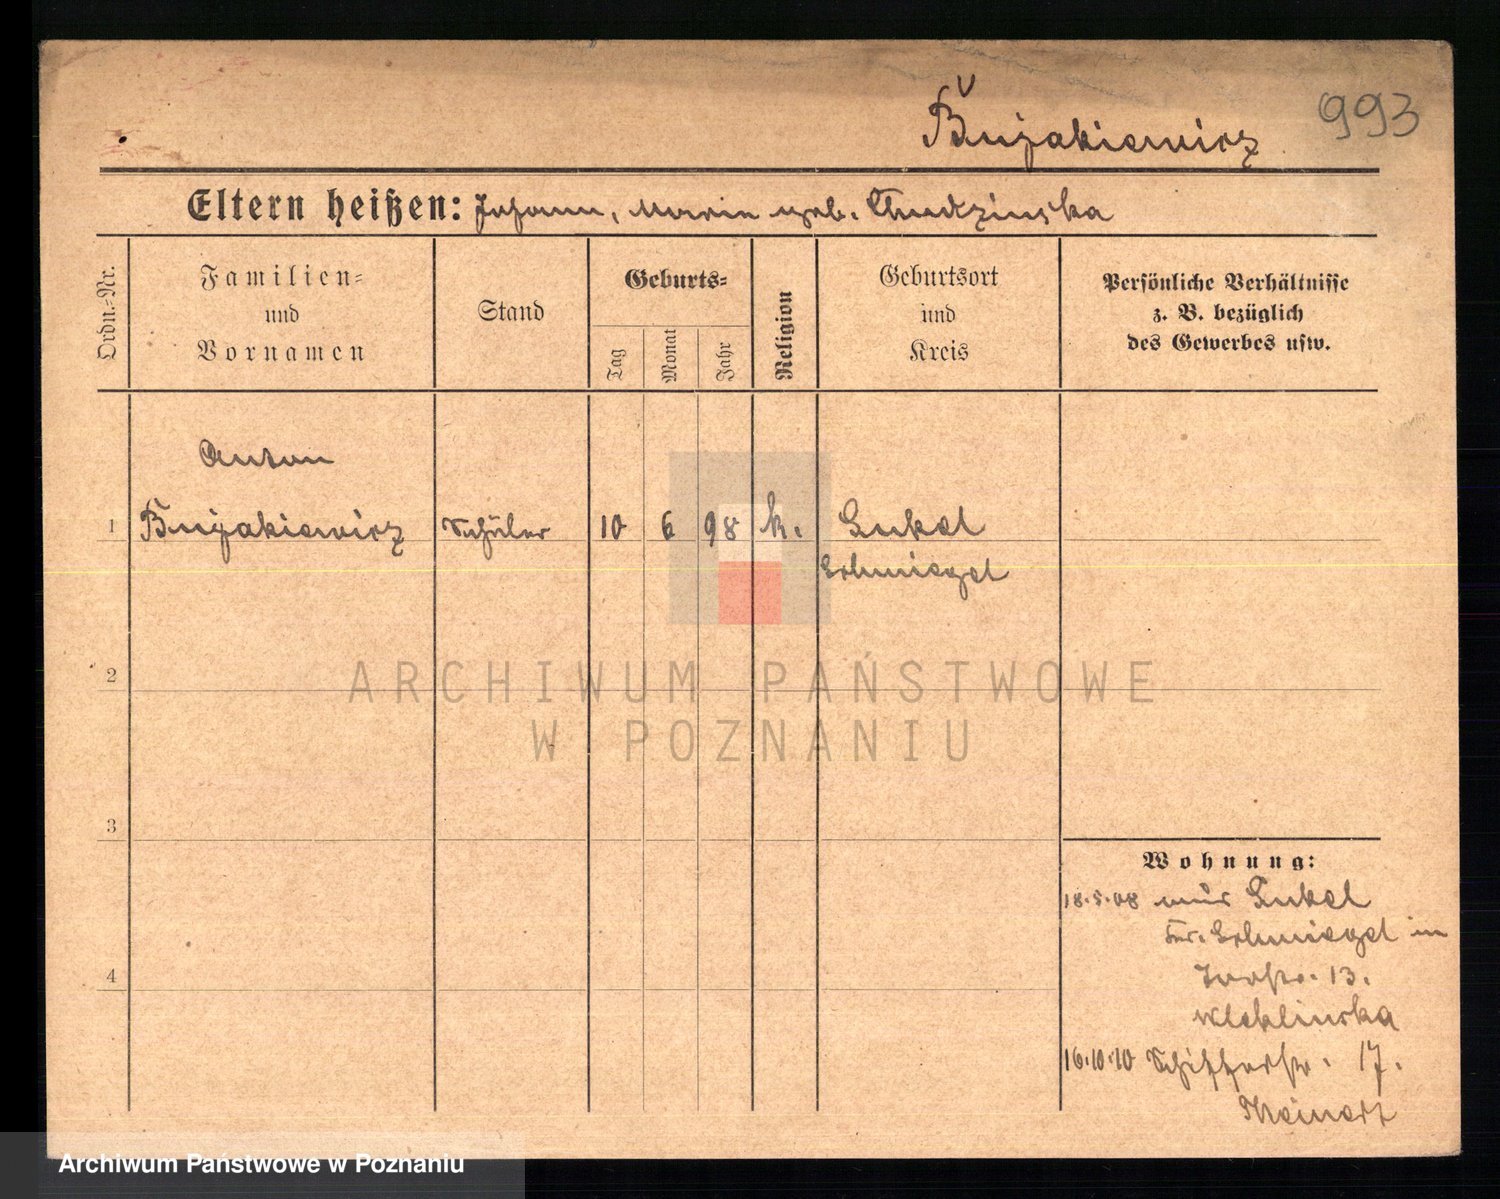 Bujakiewicz
993
Eltern heißen: Johann, Marie geb. Chudzinska
Ordn.=Nr.
Familien=
und
Vornamen
Stand
Geburts=
Tag
Monat
Jahr
Religion
Geburtsort
und
Kreis
Persönliche Verhältnisse
z. B. bezüglich
des Gewerbes usw.
Anton
1 Bujakiewicz Schüler 10 6 98 k. Lukel
Schmiegel
2
3
4
Wohnung:
18.5.08 Lukel
Kr. Schmiegel in
13.
16.10.10 Schifferstr. 17.
ARCHIWUM PAŃSTWOWE
W POZNANIU
Archiwum Państwowe w Poznaniu